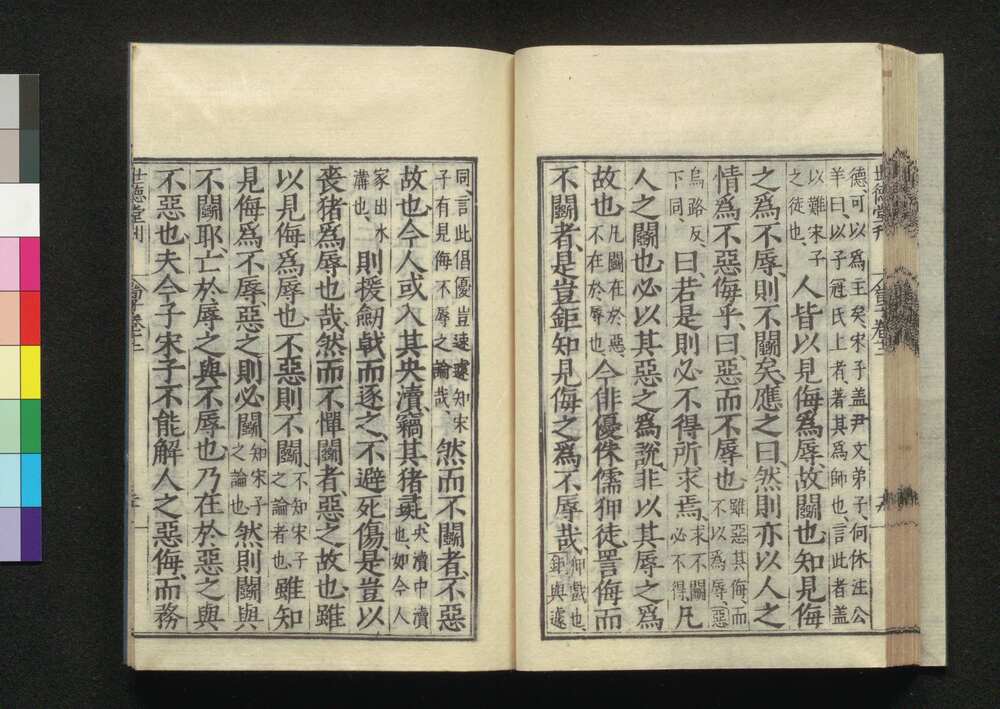 世德堂刊
德、可以爲王矣、宋子蓋尹文弟子、何休注公
羊曰、以子冠氏上者、著其爲師也、言此者蓋
以難宋子
之徒也、
人皆以見侮爲辱、故鬭也、知見侮
之爲不辱、則不鬭矣、應之曰、然則亦以人之
情爲不惡侮乎、曰、惡而不辱也、
雖惡其侮、而
不以爲辱、惡
烏路反、
下同、
曰、若是則必不得所求焉、
求不鬭
必不得、
凡
人之鬭也、必以其惡之爲說、非以其辱之爲
故也、
凡鬭在於惡、
不在於辱也、
今俳優侏儒狎徒詈侮而
不鬭者、是豈鉅知見侮之爲不辱哉、
狎戲也、
鉅與遽
同、言此倡優豈速遽知宋
子有見侮不辱之論哉、
然而不鬭者、不惡
故也、今人或入其央瀆、竊其猪彘、
央瀆中瀆
也如今人
家出水
溝也、
則援劒戟而逐之、不避死傷、是豈以
喪猪爲辱也哉、然而不憚鬭者、惡之故也、雖
以見侮爲辱也、不惡則不鬭、
不知宋子
之論者也、
雖知
見侮爲不辱、惡之則必鬭、
知宋子
之論也
然則鬭與
不鬭耶、亡於辱之與不辱也、乃在於惡之與
不惡也、夫今子宋子不能解人之惡侮、而務
世德堂刊